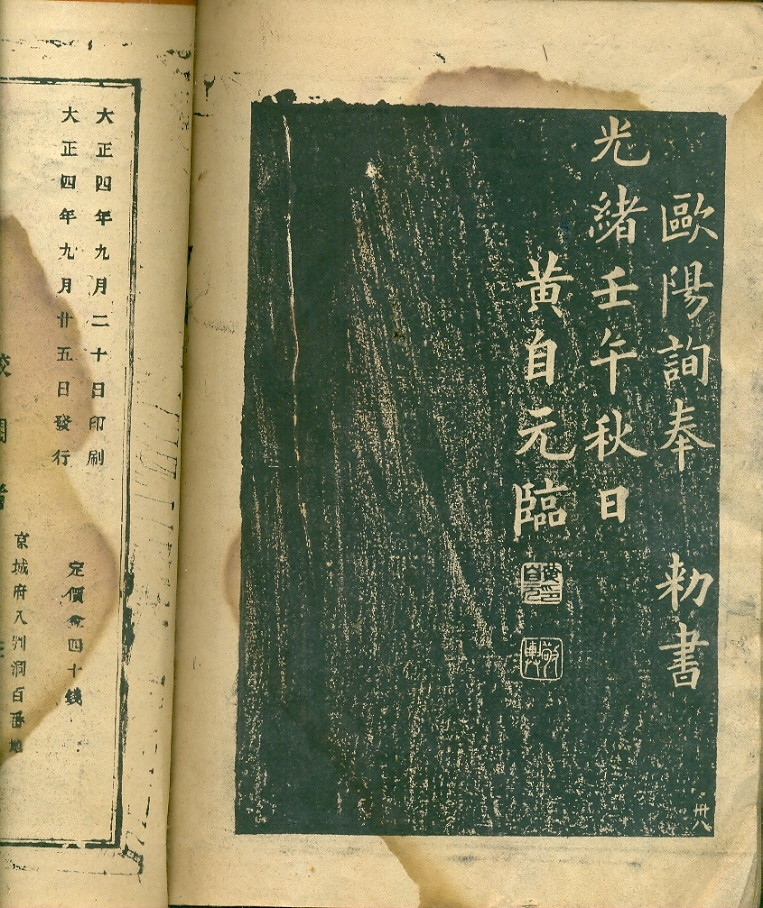 歐陽詢奉 勅書
光緒壬午秋日
黄自元臨
黄自元印
敬輿
卅八
大正四年九月二十日印刷
大正四年九月廿五日發行
定價金四十錢
京城府八判洞百番地